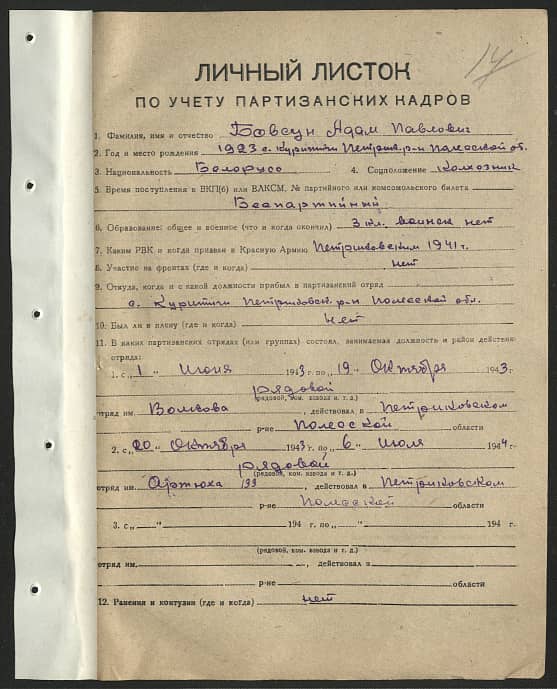 17
ЛИЧНЫЙ ЛИСТОК
ПО УЧЕТУ ПАРТИЗАНСКИХ КАДРОВ
1. Фамилия, имя и отчество Бовсун Адам Павлович
2. Год и место рождения 1923 с. Куритичи Петрик. р-н Полесской об.
3. Национальность Белорусс 4. Соцположение Колхозник
5. Время поступления в ВКП(б) или ВЛКСМ, № партийного или комсомольского билета
Беспартийный
6. Образование: общее и военное (что и когда окончил) 3 кл. воинск нет
7. Каким РВК и когда призван в Красную Армию Петриковским 1941 г.
8. Участие на фронтах (где и когда) нет
9. Откуда, когда и с какой должности прибыл в партизанский отряд
с. Куритичи Петриковск. р-н Полесской обл.
10. Был ли в плену (где и когда) нет
11. В каких партизанских отрядах (или группах) состоял, занимаемая должность и район действия
отряда:
1. с „1" Июня 1943 г. по „19" Октября 1943 г.
рядовой
(рядовой, ком. взвода и т. д.)
отряд им. Волкова, действовал в Петриковском
р-не Полесской области
2. с „20" Октября 1943 г. по „6" Июля 1944 г.
рядовой
(рядовой, ком. взвода и т. д.)
отряд им. 199, действовал в Петриковском
р-не Полесской области
3. с „ " 194 г. по „ " 194 г.
(рядовой, ком. взвода и т. д.)
отряд им. , действовал в
р-не области
12. Ранения и контузии (где и когда) нет